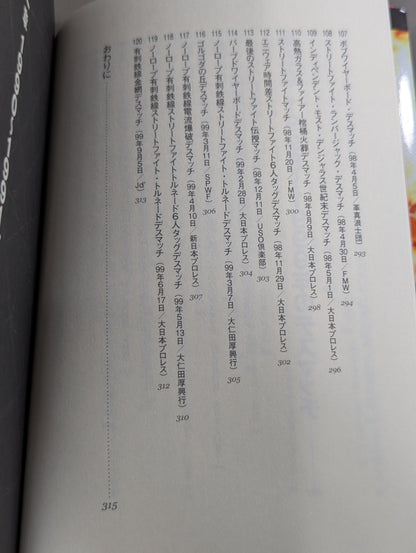 107 ボブワイヤーボード・デスマッチ（98年4月5日／革真浪士団） 293
108 ストリートファイト・ランバージャック・デスマッチ（98年4月30日／FMW） 294
109 インディペンデント・モスト・デンジャラス世紀末デスマッチ（98年5月1日／大日本プロレス） 296
110 高熱ガラス&ファイアー棺桶火葬デスマッチ（98年8月9日／大日本プロレス） 298
111 ストリートファイトマッチ（98年11月20日／FMW） 300
112 エニウェア時間差ストリートファイト6人タッグデスマッチ（98年11月29日／大日本プロレス） 302
113 最後のストリートファイト伝授マッチ（98年12月11日／USO倶楽部） 303
114 バーブドワイヤーボードデスマッチ（99年2月28日／大日本プロレス） 304
115 ノーロープ有刺鉄線ストリートファイト・トルネードデスマッチ（99年3月7日／大仁田厚興行） 305
116 ゴルゴダの丘デスマッチ（99年3月11日／SPWF） 306
117 ノーロープ有刺鉄線電流爆破デスマッチ（99年4月10日／新日本プロレス） 307
118 ノーロープ有刺鉄線ストリートファイトトルネード6人タッグデスマッチ（99年5月13日／大仁田厚興行） 310
119 ノーロープ有刺鉄線ストリートファイト・トルネードデスマッチ（99年6月17日／大日本プロレス） 312
120 有刺鉄線金網デスマッチ（99年9月5日／Jd'） 313
おわりに 315